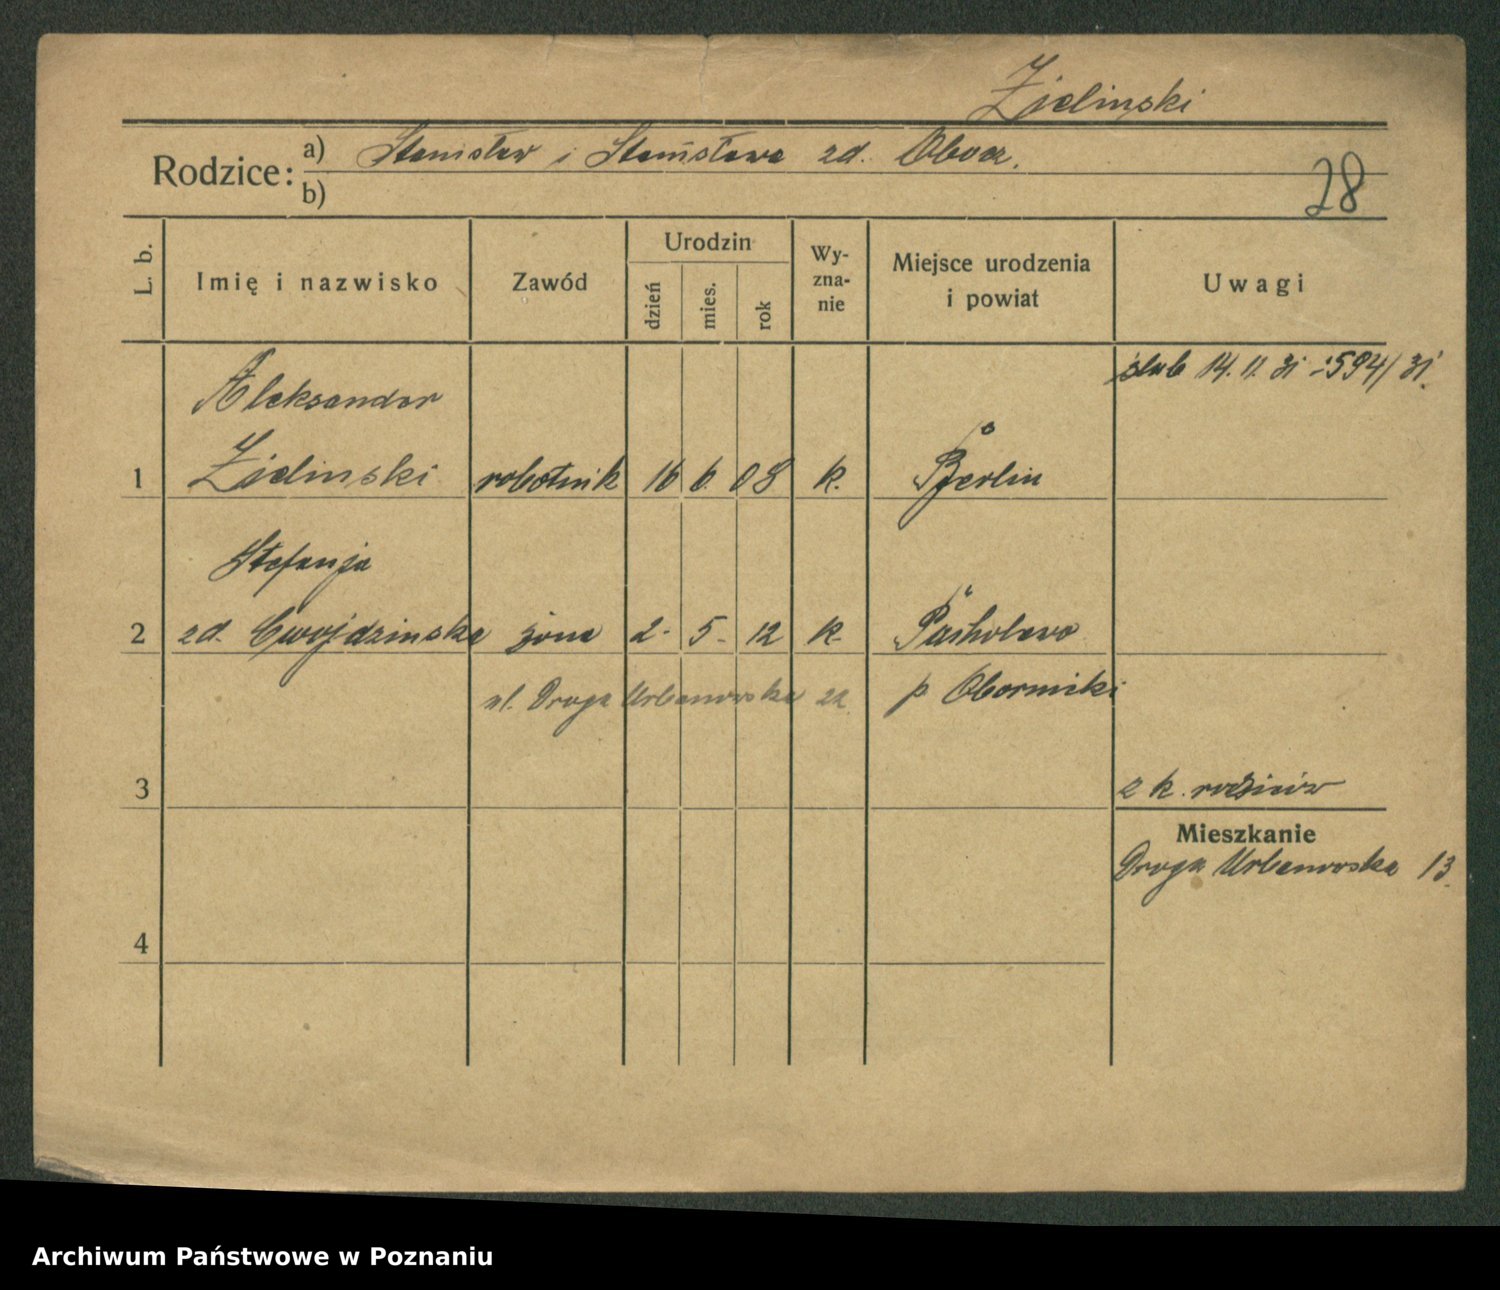 Zielinski
Rodzice: a) Stanisław i Stanisława zd. Obvcz.
b)
28
L. b.
Imię i nazwisko
Zawód
Urodzin
dzień
mies.
rok
Wy-
zna-
nie
Miejsce urodzenia
i powiat
Uwagi
ślub 14. 11. 31 :594/31.
Aleksander
1 Zielinski robotnik 16 6. 08 k. Berlin
Stefanja
2 zd. Cwojdzinska żona 2. 5. 12 k.
ul. Droga Urbanowska p. Oborniki
3
z k. rodziców
Mieszkanie
Droga Urbanowska 13.
4
Archiwum Państwowe w Poznaniu